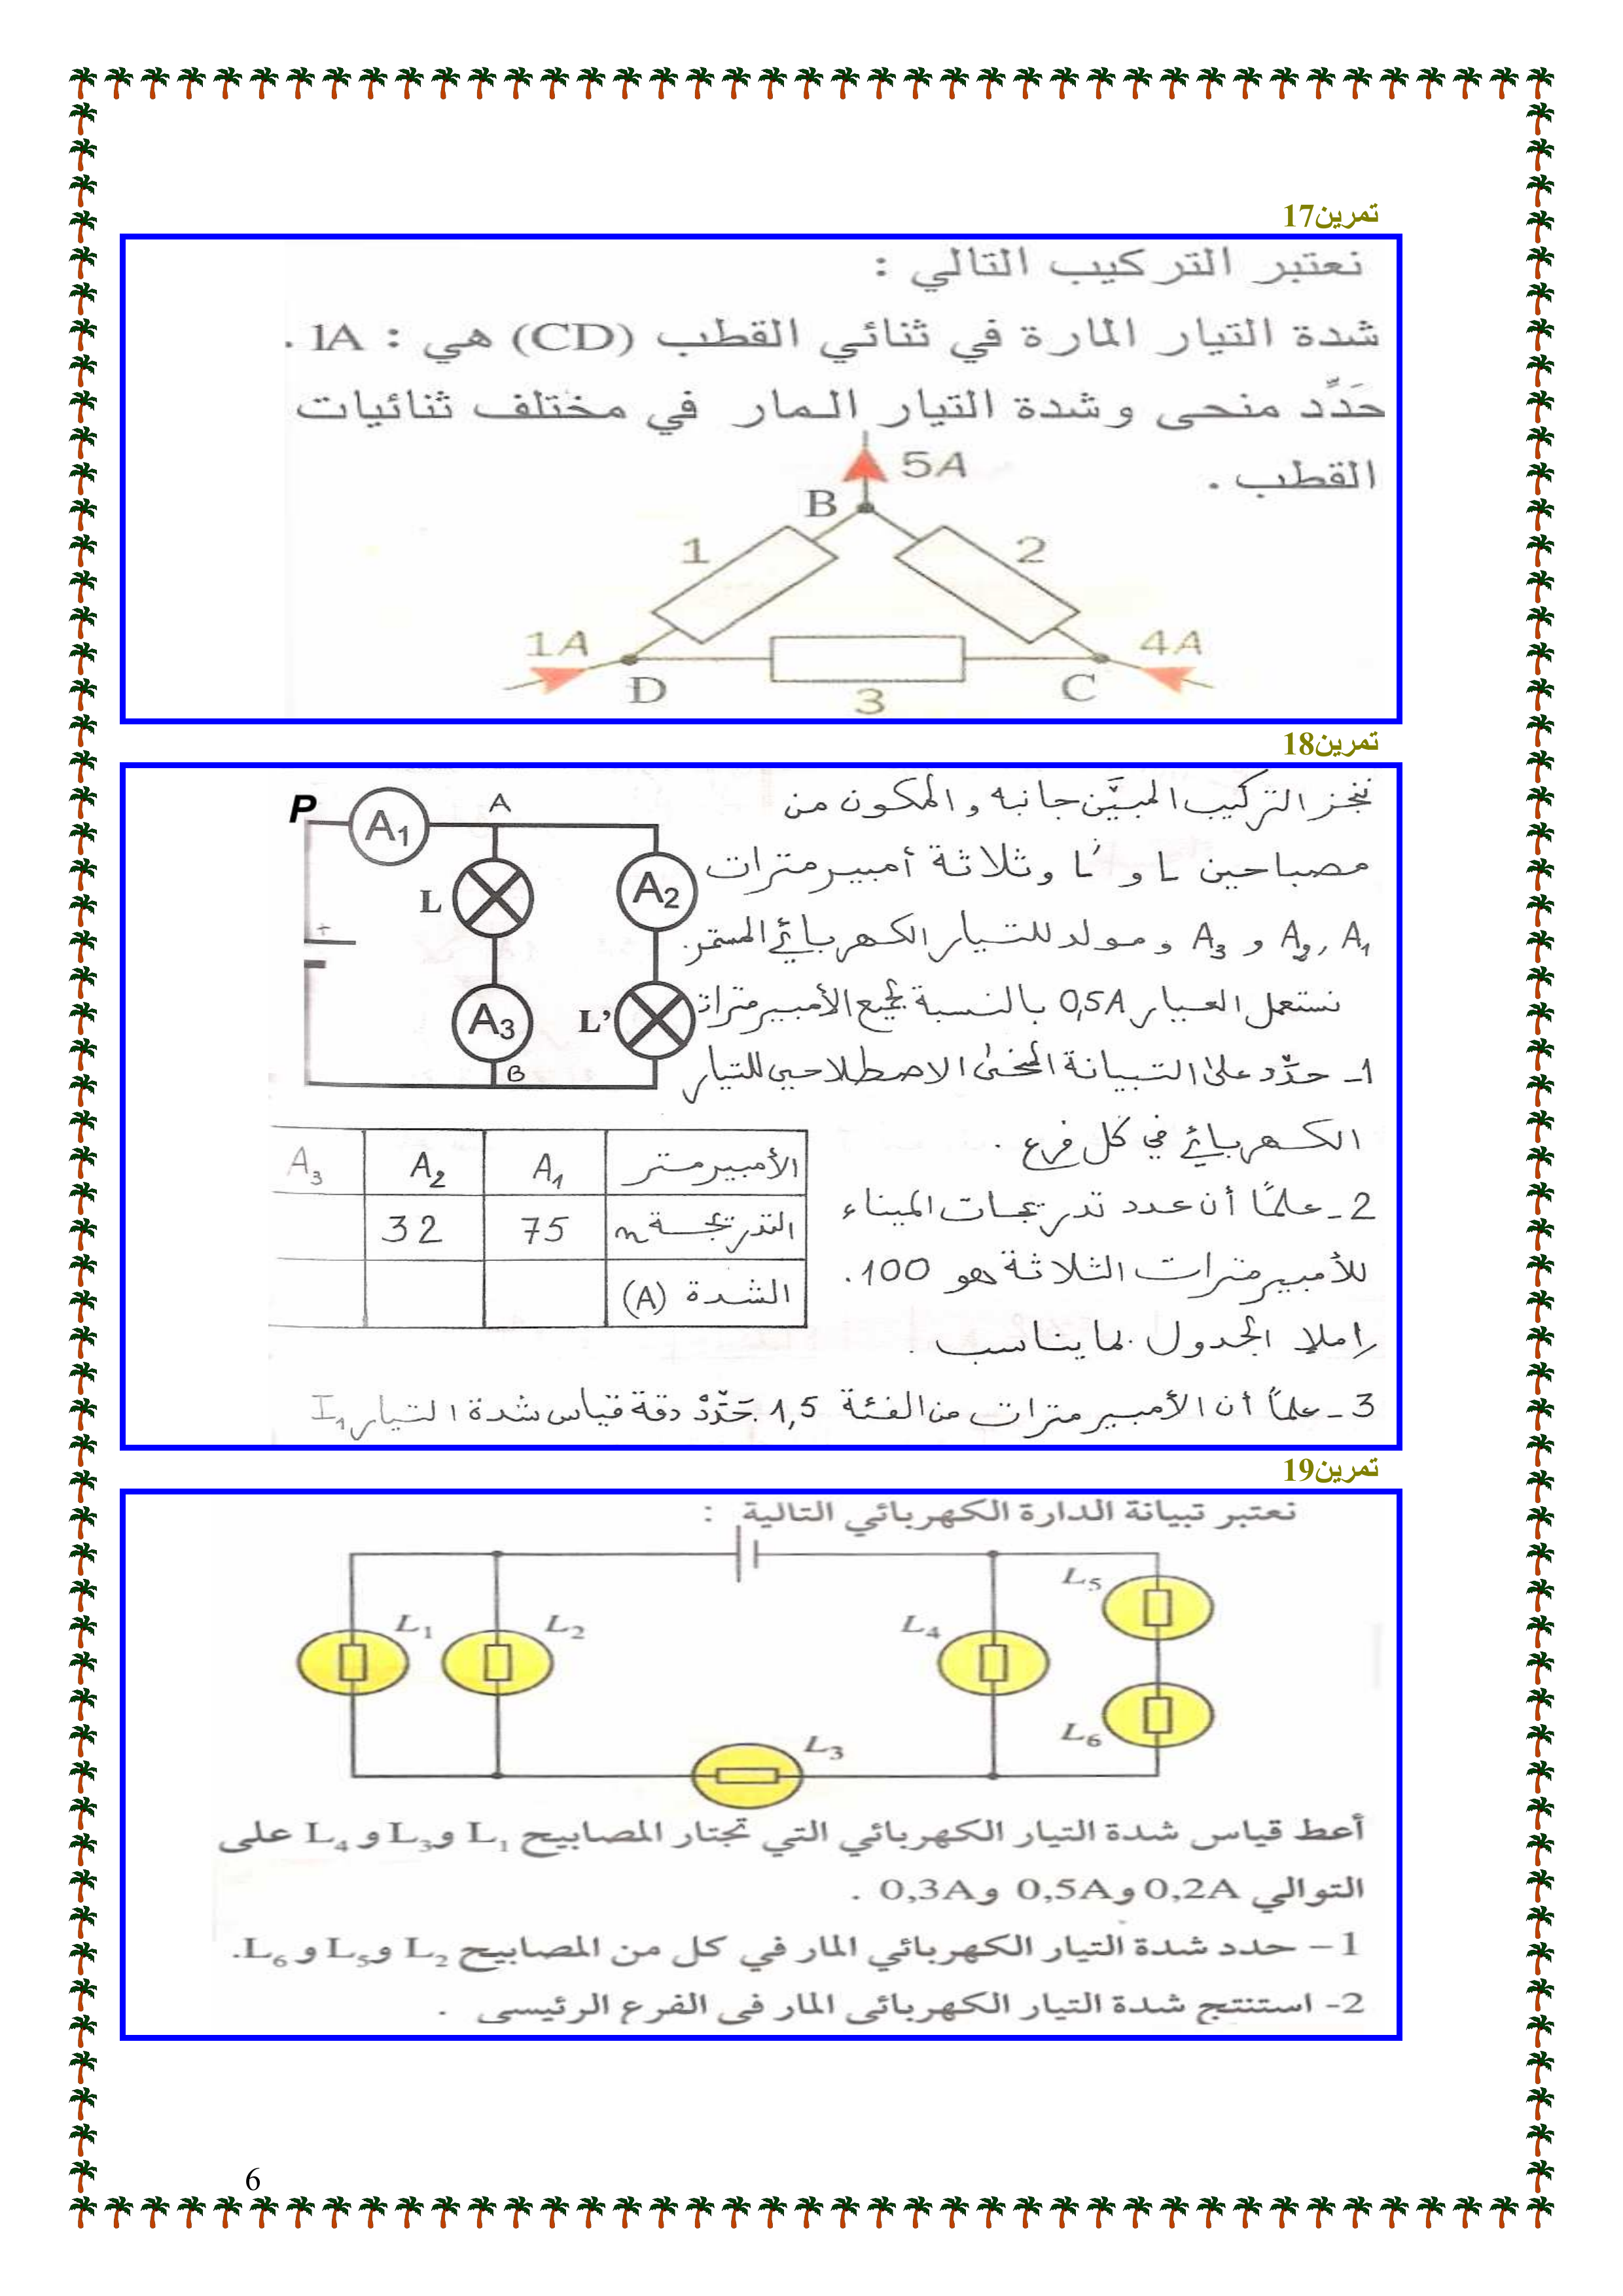 تمرين17
نعتبر التركيب التالي :
شدة التيار المارة في ثنائي القطب (CD) هي : 1A .
حَدِّد منحى وشدة التيار المار في مختلف ثنائيات
القطب .
5A
B
1
2
1A
4A
D
C
3
تمرين18
ننجز التركيب المبيَّن جانبه والمكون من
مصباحين L و L' وثلاثة أمبيرمترات
A1 , A2 و A3 و مولد للتيار الكهربائي المستمر.
نستعمل العيار 0,5A بالنسبة لجميع الأمبيرمترات
1- حدِّد على التبيانة المنحى الاصطلاحي للتيار
الكهربائي في كل فرع .
2- علمًا أن عدد تدريجات الميناء
للأمبيرمترات الثلاثة هو 100 .
إملأ الجدول بما يناسب .
3- علماً أن الأمبيرمترات من الفئة 1,5 حَدِّدْ دقة قياس شدة التيار I1
P
A1
A
L
A2
A3
L'
B
+
الأمبيرمتر A1 A2 A3
التدريجة n 75 32
الشدة (A)
تمرين19
نعتبر تبيانة الدارة الكهربائي التالية :
L5
L1
L2
L4
L6
L3
أعط قياس شدة التيار الكهربائي التي تجتار المصابيح L1 وL3 و L4 على
التوالي 0,2A و0,5A و0,3A .
1 – حدد شدة التيار الكهربائي المار في كل من المصابيح L2 وL5 و L6.
2- استنتج شدة التيار الكهربائي المار في الفرع الرئيسي .
6